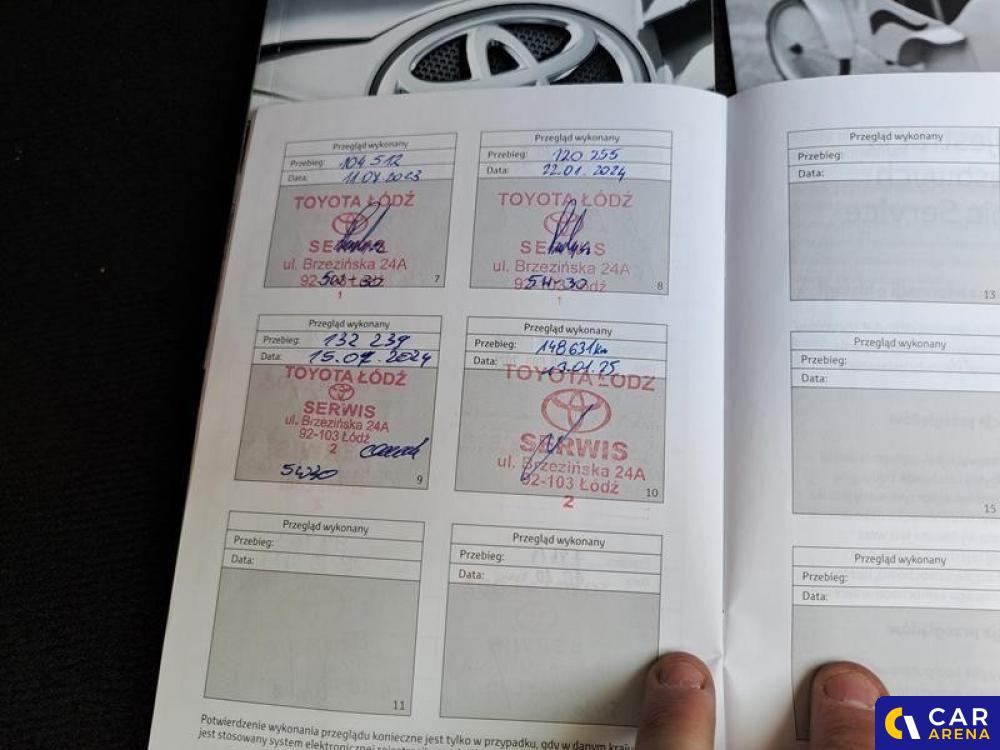 Przegląd wykonany
Przebieg: 104 512
Data: 11.07.2023
TOYOTA ŁÓDŹ
ul. Brzezińska 24A
5W-30
1
7
Przegląd wykonany
Przebieg: 120 255
Data: 22.01.2024
TOYOTA ŁÓDŹ
ul. Brzezińska 24A
5W-30
1
8
Przegląd wykonany
Przebieg: 132 239
Data: 15.07.2024
TOYOTA ŁÓDŹ
SERWIS
ul. Brzezińska 24A
92-103 Łódź
2
5W30
9
Przegląd wykonany
Przebieg: 148631km
Data: 13.01.25
TOYOTA ŁÓDŹ
SERWIS
ul. Brzezińska 24A
92-103 Łódź
2
10
Przegląd wykonany
Przebieg:
Data:
11
Przegląd wykonany
Przebieg:
Data:
Potwierdzenie wykonania przeglądu konieczne jest tylko w przypadku, gdy w danym kraju
jest stosowany system elektronicznej
Przegląd wykonany
Przebieg:
Data:
13
Przegląd wykonany
Przebieg:
Data:
15
Przegląd wykonany
Przebieg:
Data:
CAR
ARENA